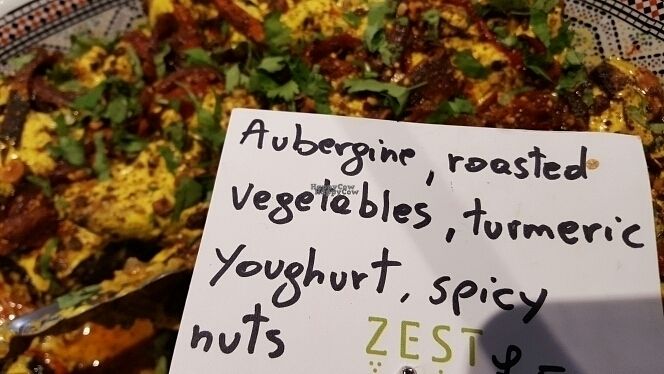 Aubergine, roasted
vegetables, turmeric
Youghurt, spicy
nuts
ZEST
HappyCow
HappyCow